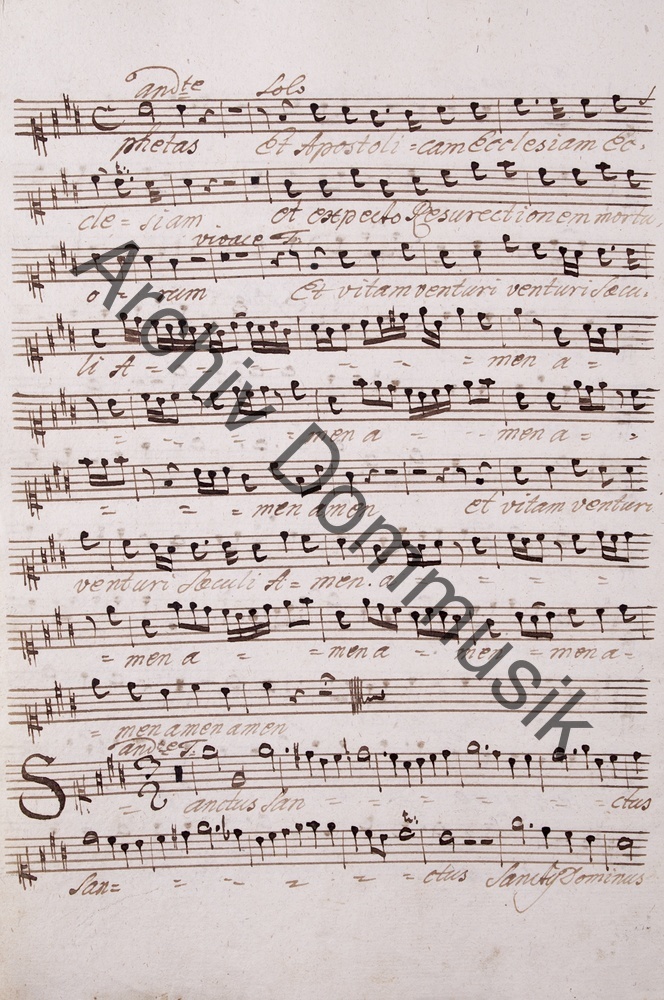 andte Solo
phetas Et Apostoli = cam Ecclesiam Ec=
cle = siam et expecto Resurectionem mortu,
vivace T.
o = rum Et vitam venturi venturi Sæcu.
li A = = = - - - = men a =
= = = = = men a = - - men a = =
= = = = men amen et vitam venturi
venturi Sæculi A = men. a = = =
= men a = = men a = men = men a =
= men amen amen
andte T.
Sanctus San = = = = = ctus
San = = = = = = = ctus Dominus
Archiv Dommusik